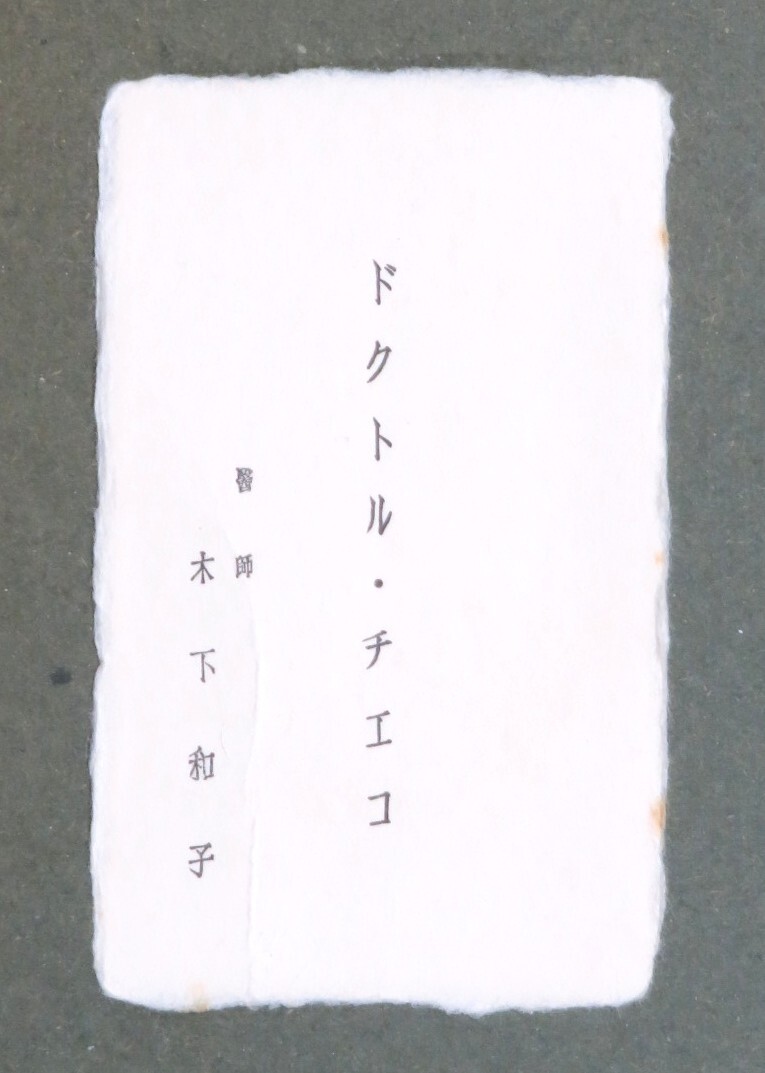 ドクトル・チエコ
醫師
木下和子